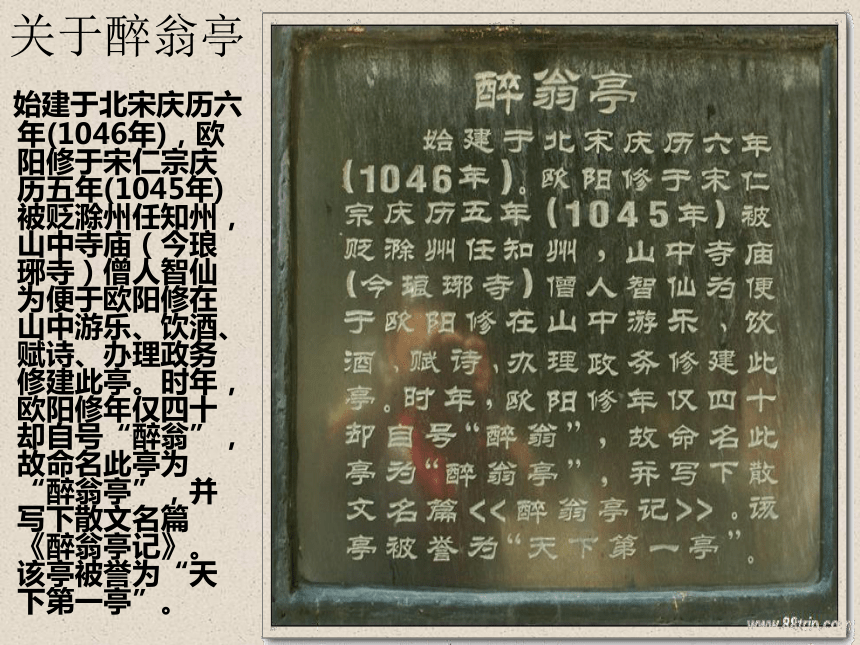 关于醉翁亭
始建于北宋庆历六
年(1046年)，欧
阳修于宋仁宗庆
历五年(1045年)
被贬滁州任知州，
山中寺庙（今琅
琊寺）僧人智仙
为便于欧阳修在
山中游乐、饮酒、
赋诗、办理政务
修建此亭。时年，
欧阳修年仅四十
却自号“醉翁”，
故命名此亭为
“醉翁亭”，并
写下散文名篇
《醉翁亭记》。
该亭被誉为“天
下第一亭”。
醉翁亭
始建于北宋庆历六年
(1046年)。欧阳修于宋仁
宗庆历五年(1045年)被
贬滁州任知州，山中寺庙
(今琅琊寺)僧人智仙为便
于欧阳修在山中游乐，饮
酒、赋诗、办理政务修建此
亭。时年，欧阳修年仅四十
却自号“醉翁”，故命名此
亭为“醉翁亭”，并写下散
文名篇<<醉翁亭记>>。该
亭被誉为“天下第一亭”。